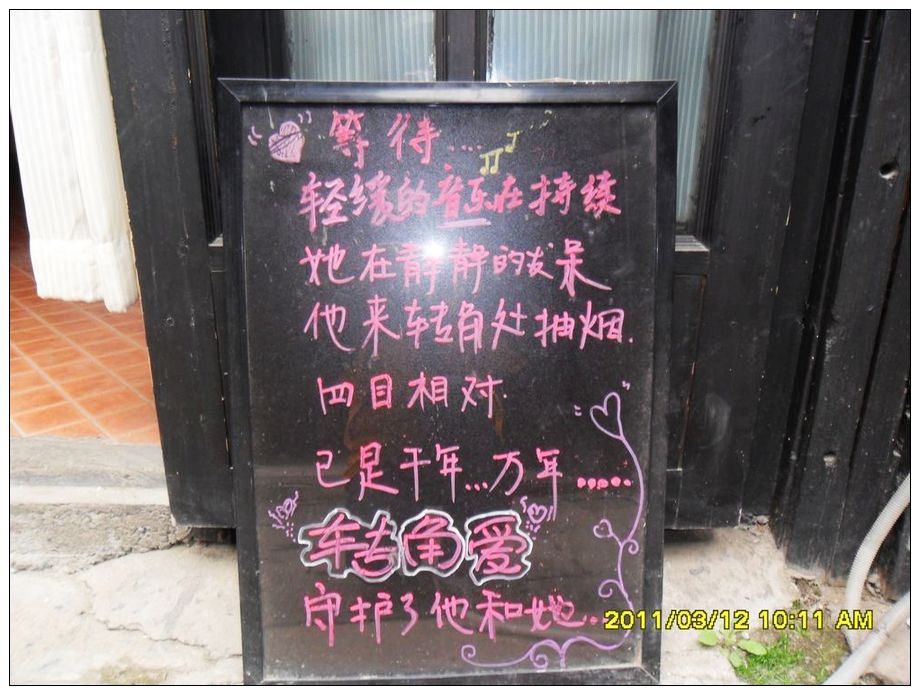 等待...
轻缓的音乐在持续
她在静静的发呆
他来转角处抽烟.
四目相对.
已是千年...万年......
转角爱
守护了他和她...
2011/03/12 10:11 AM